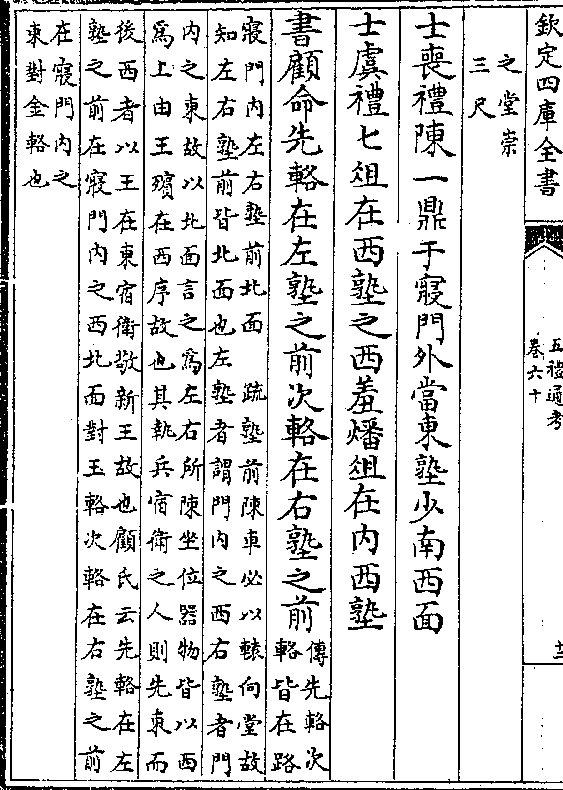 欽定四庫全書
五禮通考
卷六十
之堂崇
三尺
士喪禮陳一鼎于寢門外當東塾少南西面
士虞禮七俎在西塾之西羞燔俎在内西塾
書顧命先輅在左塾之前次輅在右塾之前
傳先輅次
輅皆在路
寢門内左右塾前北面　疏塾前陳車必以轅向堂故
知左右塾前皆北面也左塾者謂門内之西右塾者門
内之東故以北面言之為左右所陳坐位器物皆以西
為上由王殯在西序故也其執兵宿衛之人則先東而
後西者以王在東宿衛敬新王故也顧氏云先輅在左
塾之前在寢門内之西北面對玉輅次輅在右塾之前
在寢門内之
東對金輅也